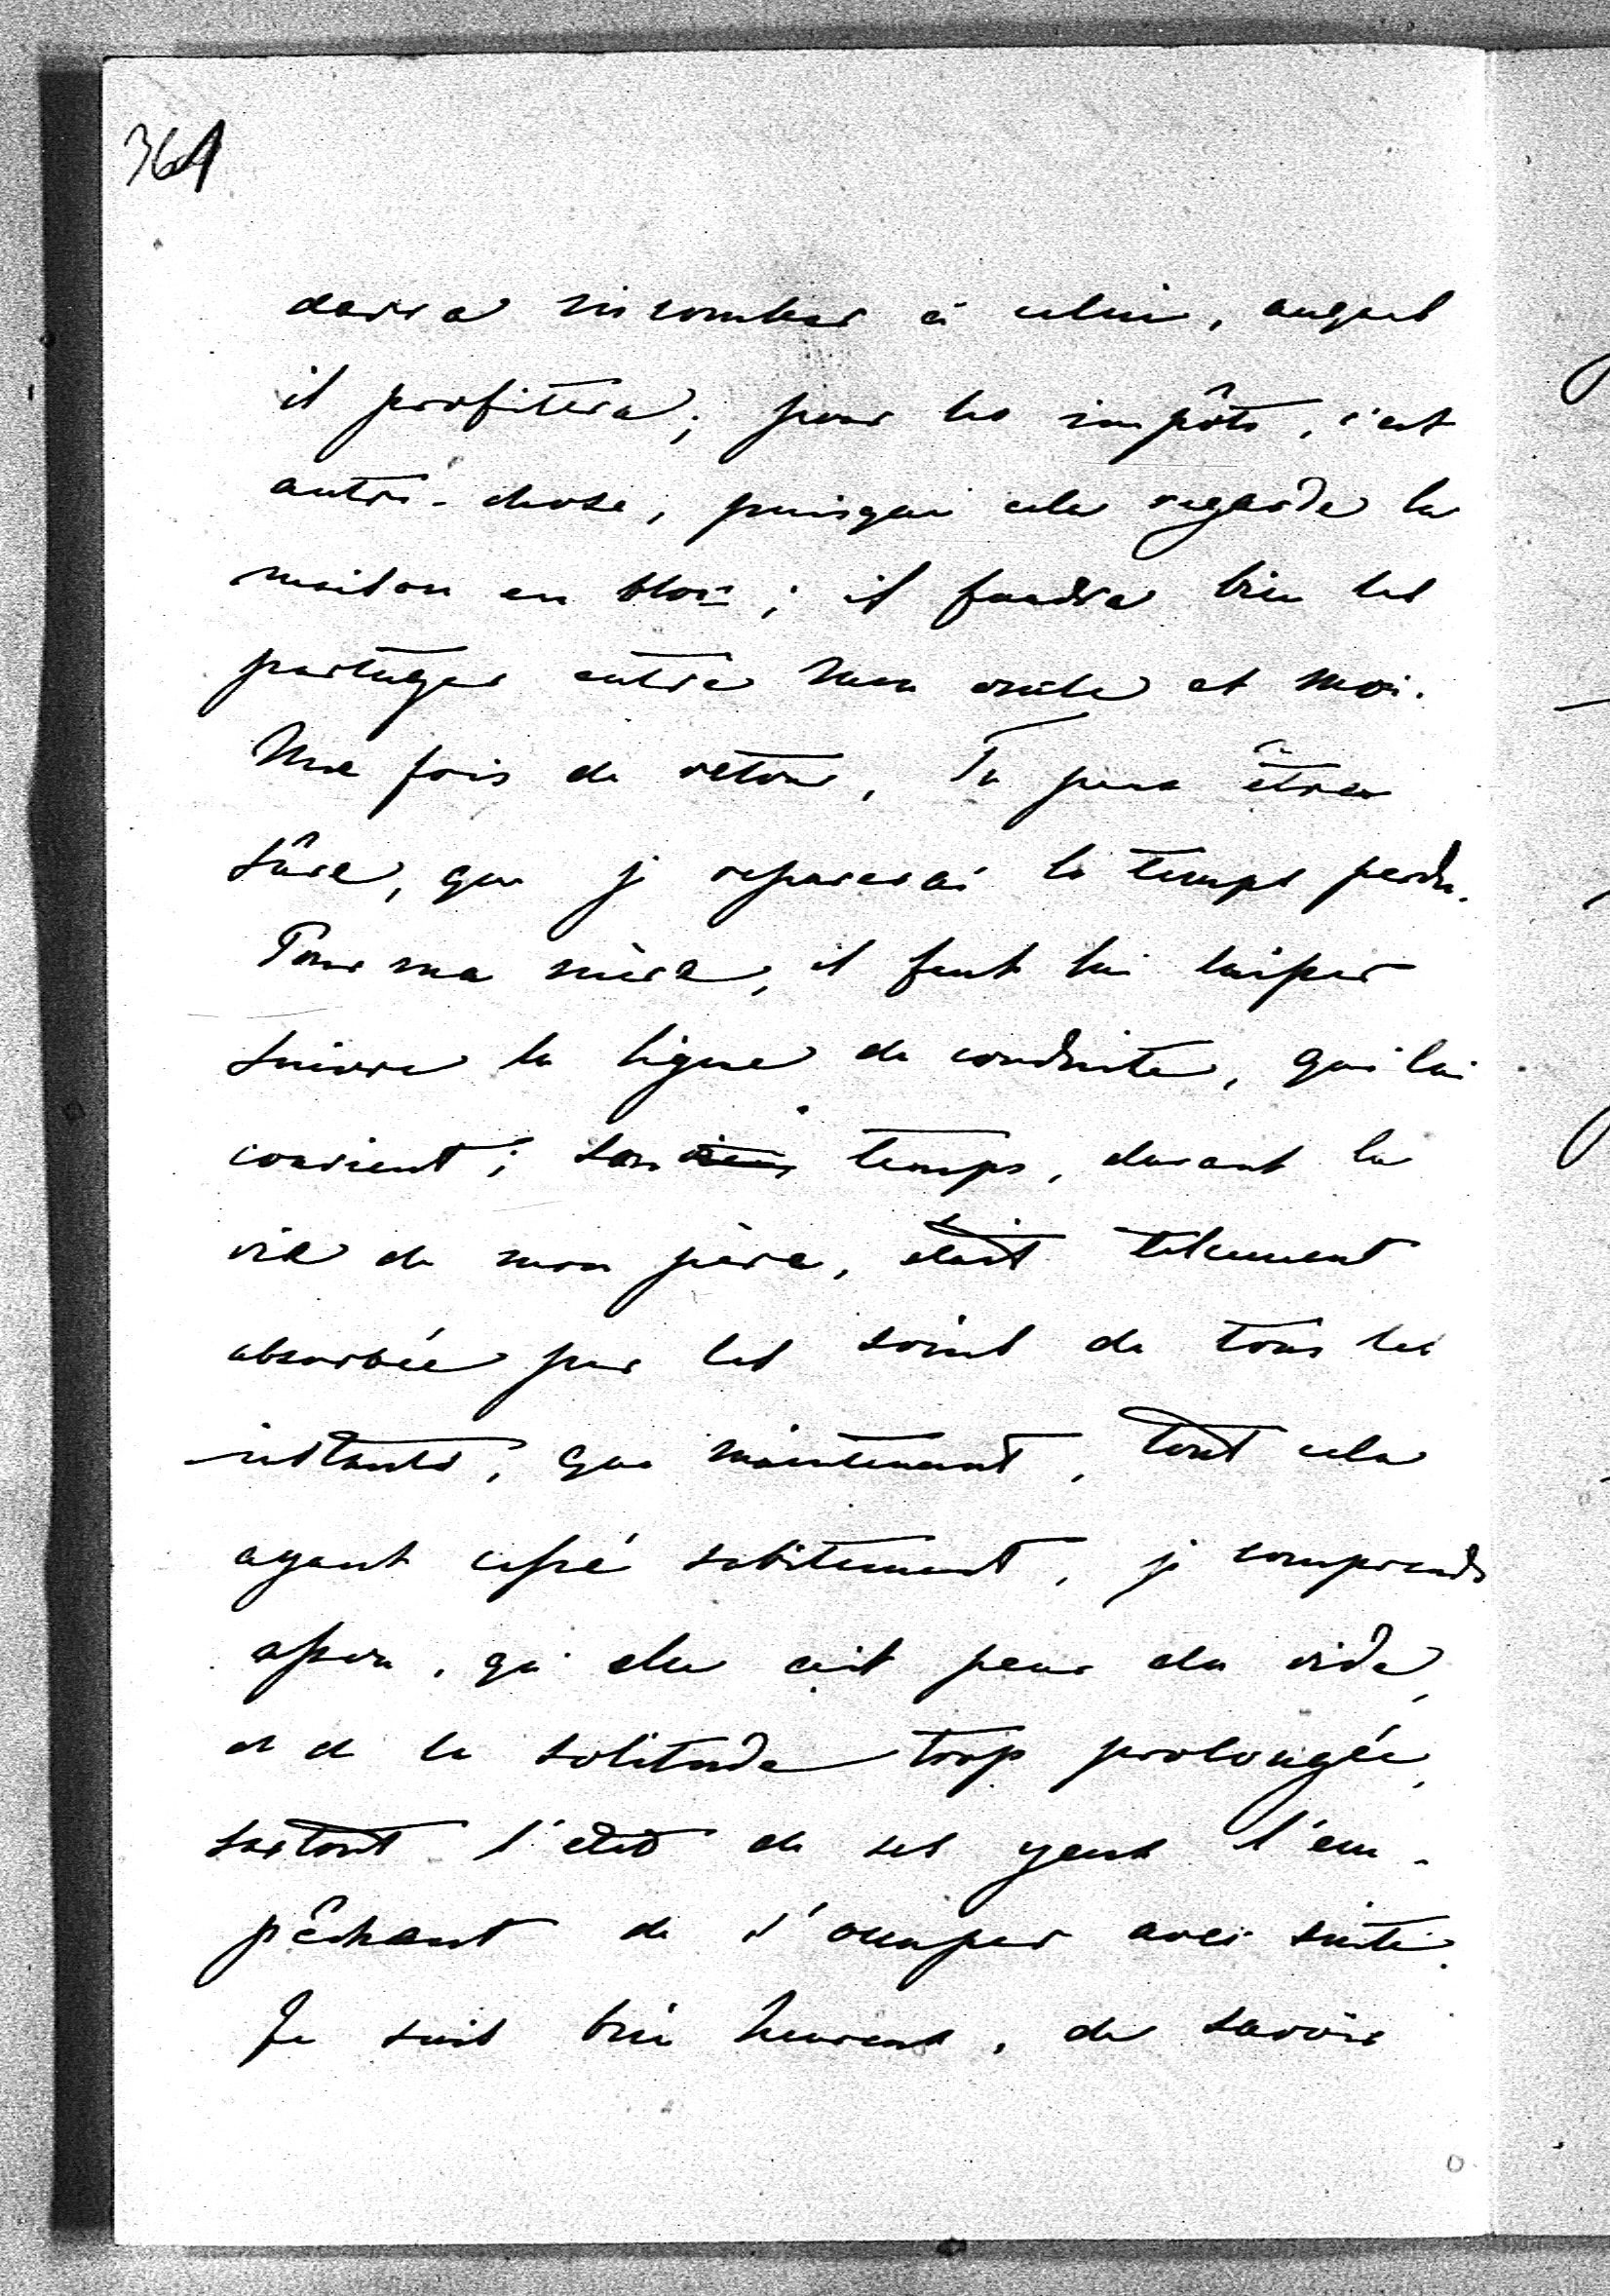 361
devra incomber à celui, auquel
il profitera; pour les impôts, c'est
autre-chose, puisque cela regarde la
maison en bloc; il faudra bien les
partager entre mon oncle et moi.
Une fois de retour, Tu peux être
sûre, que je reparerai le temps perdu.
Pour ma mère, il faut lui laisser
suivre la ligne de conduite, qui lui
convient; son temps, durant la
vie de mon père, était tellement
absorbée par les soins de tous les
instants, que maintenant, tout cela
ayant cessé subitement, je comprends
assez, qu'elle ait peur du vide,
et de la solitude trop prolongée,
surtout l'état de ses yeux l'em-
pêchant de s'occuper avec suite.
Je suis bien heureux, de savoir